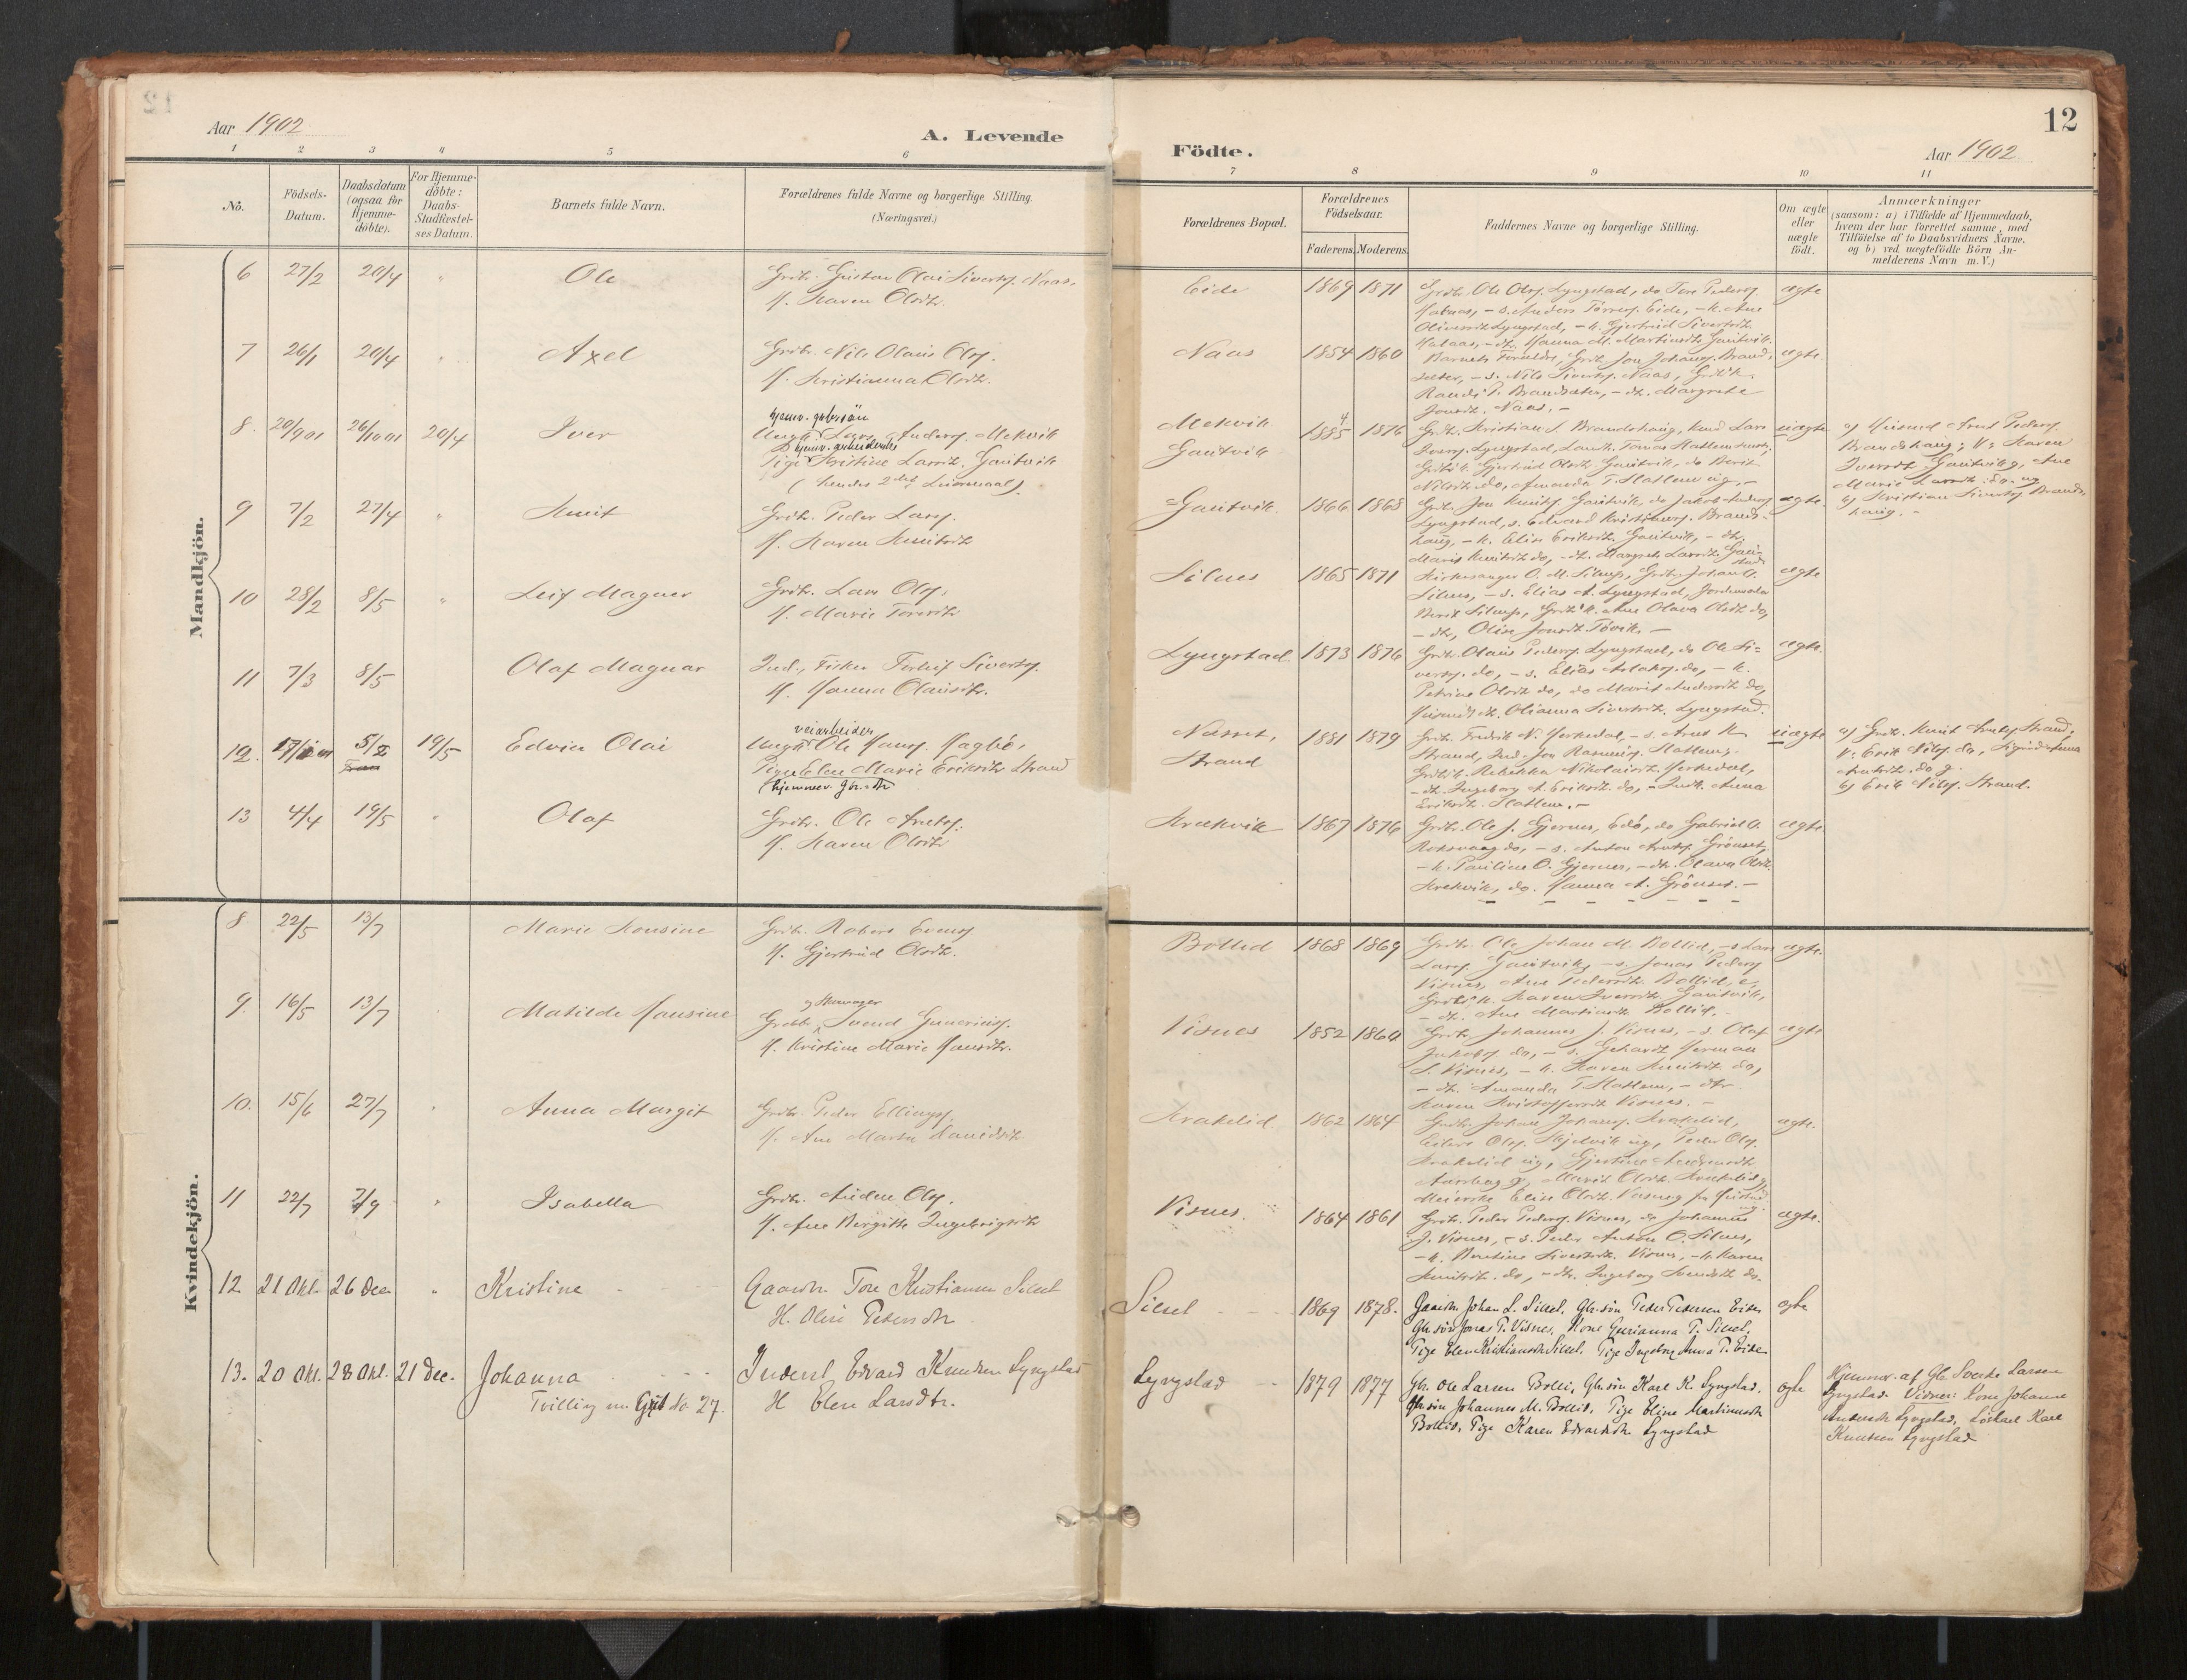 12
Aar 1902
A. Levende
Födte.
Aar 1902
1 2 3 4 5 6 7 8 9 10 11
No.
Födsels-
Datum.
Daabsdatum
(ogsaa for
Hjemme-
döbte).
For Hjemme-
döbte:
Daabs-
Stadfæstel-
ses Datum.
Barnets fulde Navn.
Forældrenes fulde Navne og borgerlige Stilling.
(Næringsvei.)
Forældrenes Bopæl.
Forældrenes
Födselsaar.
Faderens. Moderens.
Faddernes Navne og borgerlige Stilling.
Om ægte
eller
uægte
födt.
Anmærkninger
(saasom: a) i Tilfælde af Hjemmedaab,
hvem der har forrettet samme, med
Tilföielse af to Daabsvidners Navne.
og b) ved uægtefödte Börn An-
melderens Navn m. V.)
Mandkjön.
6 27/2 20/4 " Ole
Grdbr. Olai Siverts. Naas.
H. Karen Olsdtr.
Eide 1869 1871
Grdbr. Ole Ols. Lyngstad, do Tore Peders.
Oliversdtr. Lyngstad, - k. Gjertrud Sivertsdtr.
ægte
7 26/1 20/4 " Axel
Grdbr. Nils Olaus Ols.
H. Kristianna Olsdtr.
Naas 1854 1860
Barnets Forældre, Grdb. Jon Johans. Brand-
sæter, - s. Nils Siverts. Naas, Grdb.k.
Randi P. Brandsæter, - dt. Margrete
Jonsdt. Naas. -
ægte.
8. 20/9 01 26/10 01 20/4 Iver
hjemv. gbrsön
Ungk. Lars Anders. Mekvik
hjemv. arbeidende
Pige Kristine Larsdt. Gautvik
(hendes 2det Leiermaal).
Mekvik
Gautvik
1885 4 1876
Grdb. Kristian S. Brandshaug, Lars
Ivers. Lyngstad, Tomas Hatlem
Grdb.k. Gjertrud Olsdt. Gautvik, do Berit
Nilsdt. do, Amanda T. Hatlem ug. -
uægte
Brandshaug; V: Karen
Iversdt. Gautvik g, Ane
Marie Larsdt. do. ug
b) Kristian Siverts. Brands-
haug. -
9 7/2 27/4 " Knut
Grdb. Peder Lars.
H. Karen Knutsdt.
Gautvik. 1866 1868
Grdb. Jon Knuts. Gautvik, do Jakob Anders.
Lyngstad, s. Edvard Kristians. Brands-
haug, - k. Elin Eriksdt. Gautvik, - dt.
Marit Knutsdt. do, - dt. Margrete Larsdt.
ægte.
10 28/2 8/5 " Leif Magner
Grdb. Lars Ols.
H. Marie Toresdt.
Silnes 1865 1871
Kirkesanger O. M. Silnes, Grdb. Johan O.
Silnes, - s. Elias A. Lyngstad, Jordmoder
Berit Silnes, Grdb.k. Ane Olava Olsdt. do,
- dt. Olise Jonsdt. Tövik. -
ægte
11 7/3 8/5 Olaf Magnar
Ind., Fisker Torleif Siverts.
H. Hanna Olausdt.
Lyngstad. 1873 1876
Grdb. Olaus Peders. Lyngstad, do Ole Si-
verts. do, - s. Elias Aslaks. do, - k.
Petrine Olsdt. do, do Marit Andersdt. do,
Olianna Sivertsdt. Lyngstad.
ægte.
12. 5/2 19/5 Edvin Olai
veiarbeider
Ungk. Ole Hans. Hagbö,
Pige Elen Marie Eriksdt. Strand
(hjemmev. gbr. dtr.
Næsset,
Strand
1881 1879
Grdb. Fredrik N. Herkedal, - s. Arnt K.
Strand, Ind. Jon Rasmus. Hatlem g.
Grdb.k. Rebekka Nikolaisdt. Herkedal,
- dt. Ingeborg A. Eriksdt. do, - Anna
Eriksdt. Hatlem. -
uægte
a) Grdb. Knut Arnts. Strand,
V: Erik Nils. do, Sigrid Anna
Arntsdt. do g.
b) Erik Nils. Strand.
13 4/4 19/5 " Olaf
Grdb. Ole Arnts.
H. Karen Olsdt.
Krekvik 1867 1876
Grdb. Ole J. Gjernes, Edö, do Gabriel O.
Roksvaag do, - s. Anton Grönset,
- k. Pauline O. Gjernes, - dt. Olava Olsdt.
Krekvik, do. Hanna A. Grönset. -
ægte.
Kvindekjön.
8 22/5 13/7 Marie Konsine
Grdb. Robert Evens.
H. Gjertrud Olsdt.
Bollid 1868 1869
Grdb. Ole Johan M. Bollid, - s. Lars
Lars. Gautvik, - s. Jonas Peders.
Visnes, Ane Pedersdt. Bollid, e,
Grdb.k. Karen Iversdt. Gautvik,
- dt. Ane Martinsdt. Bollid. -
ægte.
9. 16/5 13/7 Matilde Hansine
og Skomager
Grdb. Svend Gunerius.
H. Kristine Marie Hansdt.
Visnes 1852 1860
Grdb. Johannes J. Visnes, - s. Olaf
Jakobs. do, - s. Gehardt Herman
S. Visnes, - k. Karen Knutsdt. do,
- dt. Amanda T. Hatlem, - dtr.
Karen Kristoffersdt. Visnes. -
ægte
10. 15/6 27/7 " Anna Margit
Grdb. Peder Ellings.
H. Ane Marta Davidsdt.
Krakelid. 1862 1864
Grdb. Johan Johans. Krakelid,
Edvard Ols. Skjelvik ug, Peder Ols.
Krakelid ug, Gjertine
Marit Olsdt. Krakelid g,
Meierske Elise Olsdt.
ægte.
11 22/7 7/9 " Isabella
Grdb. Auden Ols.
H. Ane Bergitte Ingebrigtsdt.
Visnes. 1864 1861
Grdb. Peder Peders. Visnes, do Johannes
J. Visnes, - s. Peder Anton O. Silnes,
- k. Berntine Sivertsdt. Visnes, - k. Karen
Knutsdt. do, - dt. Ingeborg Svendsdt. do.
ægte.
12. 21 Okt. 26 Dec. " Kristine
Gaardbr. Tore Kristiansen Silset
H. Oline Pedersdtr.
Silset 1869 1878.
Gaardbr. Johan L. Silset, Gbr.sön Peder Pedersen Eide
Gbr.sön Jonas P. Visnes, Kone Gurianna T. Silset,
Pige Elen Kristiansdtr Silset. Pige Ingeborg Anna T. Eide
ægte
13. 20 Okt. 28 Okt. 21 Dec. Johanna
Tvilling m. Gut No 27.
Inderst Edvard Knudsen Lyngstad
H Elen Larsdtr.
Lyngstad 1879 1877
Gbr. Ole Larsen Bolli, Gbr.sön Karl K. Lyngstad.
Gbr.sön Johannes M. Bollid, Pige Eline Martinusdtr
Bollid, Pige Karen Edvardsdtr. Lyngstad
ægte
Hjemmed. af Gbr Sverke Larsen
Lyngstad. Vidner: Kone Johanne
Andersdtr Lyngstad, Löskarl Karl
Knudsen Lyngstad